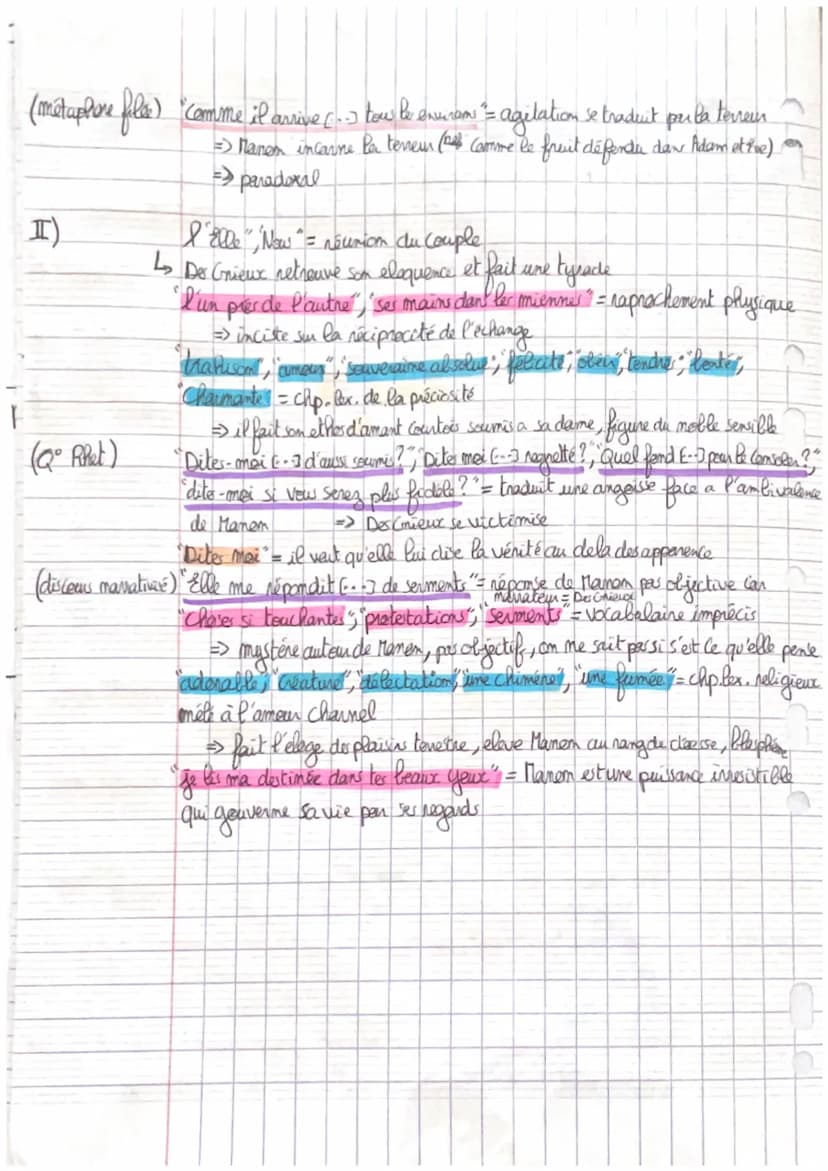 (métaphore filée) "Comme il arrive [...] tous les environs" = agitation se traduit par la terreur
=> Manon incarne la terreur (ref comme le fruit défendu dans Adam et Eve)
=> paradoxal
II) l "Elle", "Nous" = réunion du couple
↳ Des Grieux retrouve son eloquence et fait une tyrade
"l'un près de l'autre", "ses mains dans les miennes" = raprochement physique
=> inciste sur la réciprocité de l'échange
"trahison", "amour", "souveraine absolue", "félicité", "obéir", "tendre",
"Charmante" = chp. lex. de la préciosité
=> il fait son ethos d'amant courtois soumis a sa dame, figure du noble sensible
(Q° Rhet) "Dites-moi [...] d'aussi soumis ?", "Dites moi [...] regretté ?", "Quel fond [...] pour le consoler ?",
"dite-moi si vous serez plus fidèle ?" = traduit une angoisse face a l'ambivalence
de Manon => Des Grieux se victimise
"Dites moi" = il veut qu'elle lui dise la vérité au dela des apparence
(discours narrativisé) "Elle me répondit [...] de serments" = réponse de Manon pas objective car
narrateur = Des Grieux
"Choses si touchantes", "protestations", "serments" = vocabulaire imprécis
=> mystère autour de Manon, pas objectif, on ne sait pas si s'est ce qu'elle pense
"adorable", "créature", "délectation", "une chimère", "une fumée" = chp. lex. religieux
mêlé à l'amour charnel
=> fait l'éloge des plaisirs terrestre, eleve Manon au rang de déesse, blasphème
"je lis ma destinée dans tes beaux yeux" = Manon est une puissance irrésistible
qui gouverne sa vie par ses regards